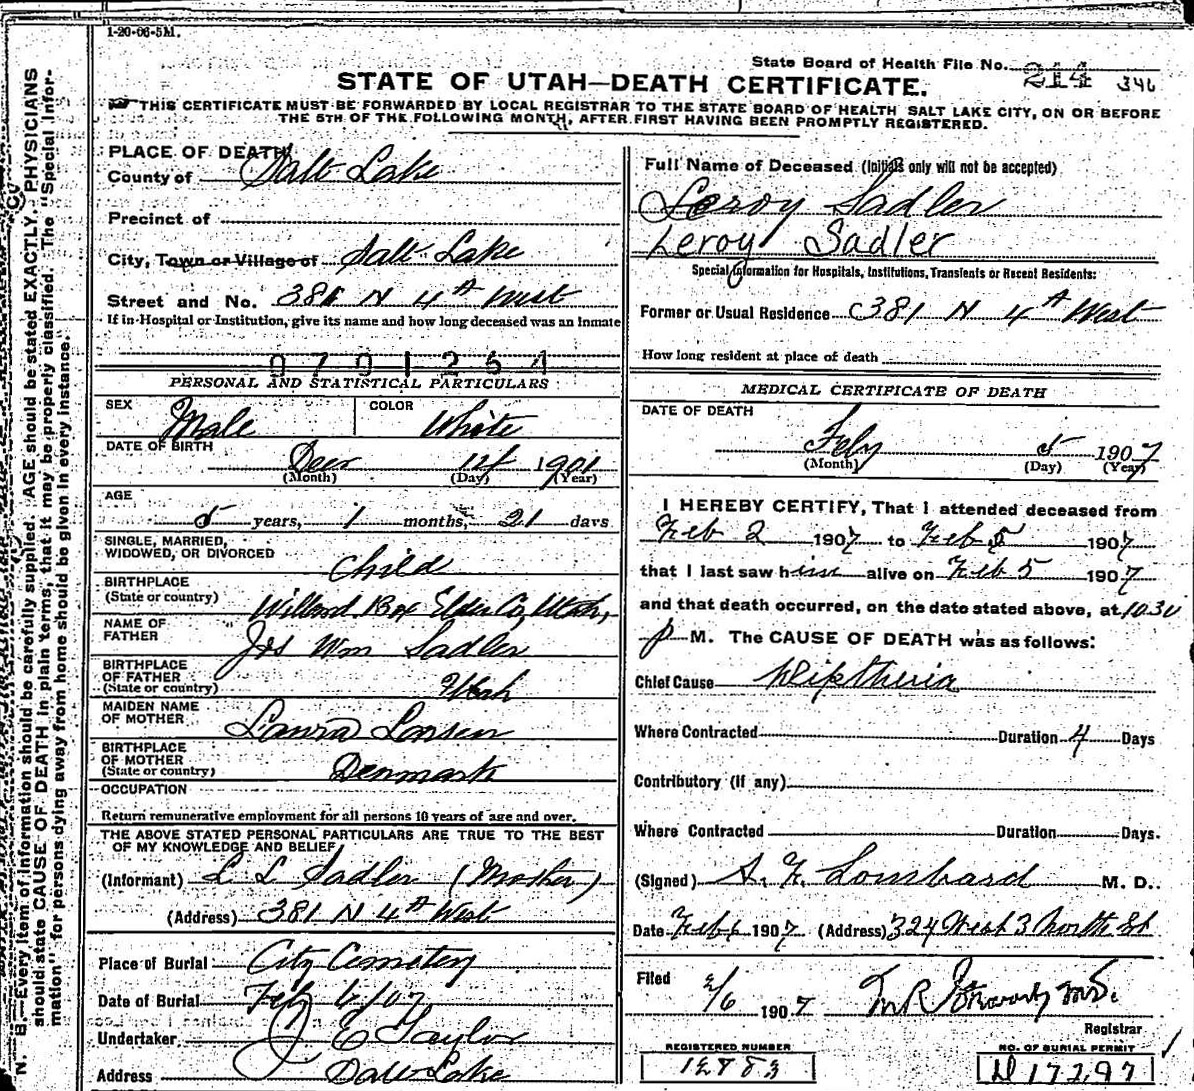 1-20-06-5M.
State Board of Health File No. 214 346
STATE OF UTAH—DEATH CERTIFICATE.
THIS CERTIFICATE MUST BE FORWARDED BY LOCAL REGISTRAR TO THE STATE BOARD OF HEALTH SALT LAKE CITY, ON OR BEFORE
THE 5TH OF THE FOLLOWING MONTH, AFTER FIRST HAVING BEEN PROMPTLY REGISTERED.
N. B.—Every item of information should be carefully supplied. AGE should be stated EXACTLY. PHYSICIANS
should state CAUSE OF DEATH in plain terms, that it may be properly classified. The "Special Infor-
mation" for persons dying away from home should be given in every instance.
PLACE OF DEATH
County of Salt Lake
Precinct of
City, Town or Village of Salt Lake
Street and No. 381 N 4th West
If in Hospital or Institution, give its name and how long deceased was an Inmate
0701254
PERSONAL AND STATISTICAL PARTICULARS
SEX Male COLOR White
DATE OF BIRTH
Decr 14 1901
(Month) (Day) (Year)
AGE
5 years, 1 months, 21 days
SINGLE, MARRIED,
WIDOWED, OR DIVORCED Child
BIRTHPLACE
(State or country) Willard Box Elder Co, Utah,
NAME OF
FATHER Jos Wm Sadler
BIRTHPLACE
OF FATHER
(State or country) Utah
MAIDEN NAME
OF MOTHER Laura Larsen
BIRTHPLACE
OF MOTHER
(State or country) Denmark
OCCUPATION
Return remunerative employment for all persons 10 years of age and over.
THE ABOVE STATED PERSONAL PARTICULARS ARE TRUE TO THE BEST
OF MY KNOWLEDGE AND BELIEF
(Informant) L L Sadler (Mother)
(Address) 381 N 4th West
Place of Burial City Cemetery
Date of Burial Feby 6/07
Undertaker J E Taylor
Address Salt Lake
Full Name of Deceased (Initials only will not be accepted)
Leroy Sadler
Leroy Sadler
Special Information for Hospitals, Institutions, Transients or Recent Residents:
Former or Usual Residence 381 N 4th West
How long resident at place of death
MEDICAL CERTIFICATE OF DEATH
DATE OF DEATH
Feby 5 1907
(Month) (Day) (Year)
I HEREBY CERTIFY, That I attended deceased from
Feb 2 1907 to Feb 5 1907
that I last saw him alive on Feb 5 1907
and that death occurred, on the date stated above, at 10 30
p M. The CAUSE OF DEATH was as follows:
Chief Cause Diptheria
Where Contracted Duration 4 Days
Contributory (if any)
Where Contracted Duration Days.
(Signed) S. F. Lombard M. D..
Date Feb 6 1907 (Address) 324 West 3 North St
Filed 2/6 1907
Registrar
REGISTERED NUMBER
12883
NO. OF BURIAL PERMIT
D 17297